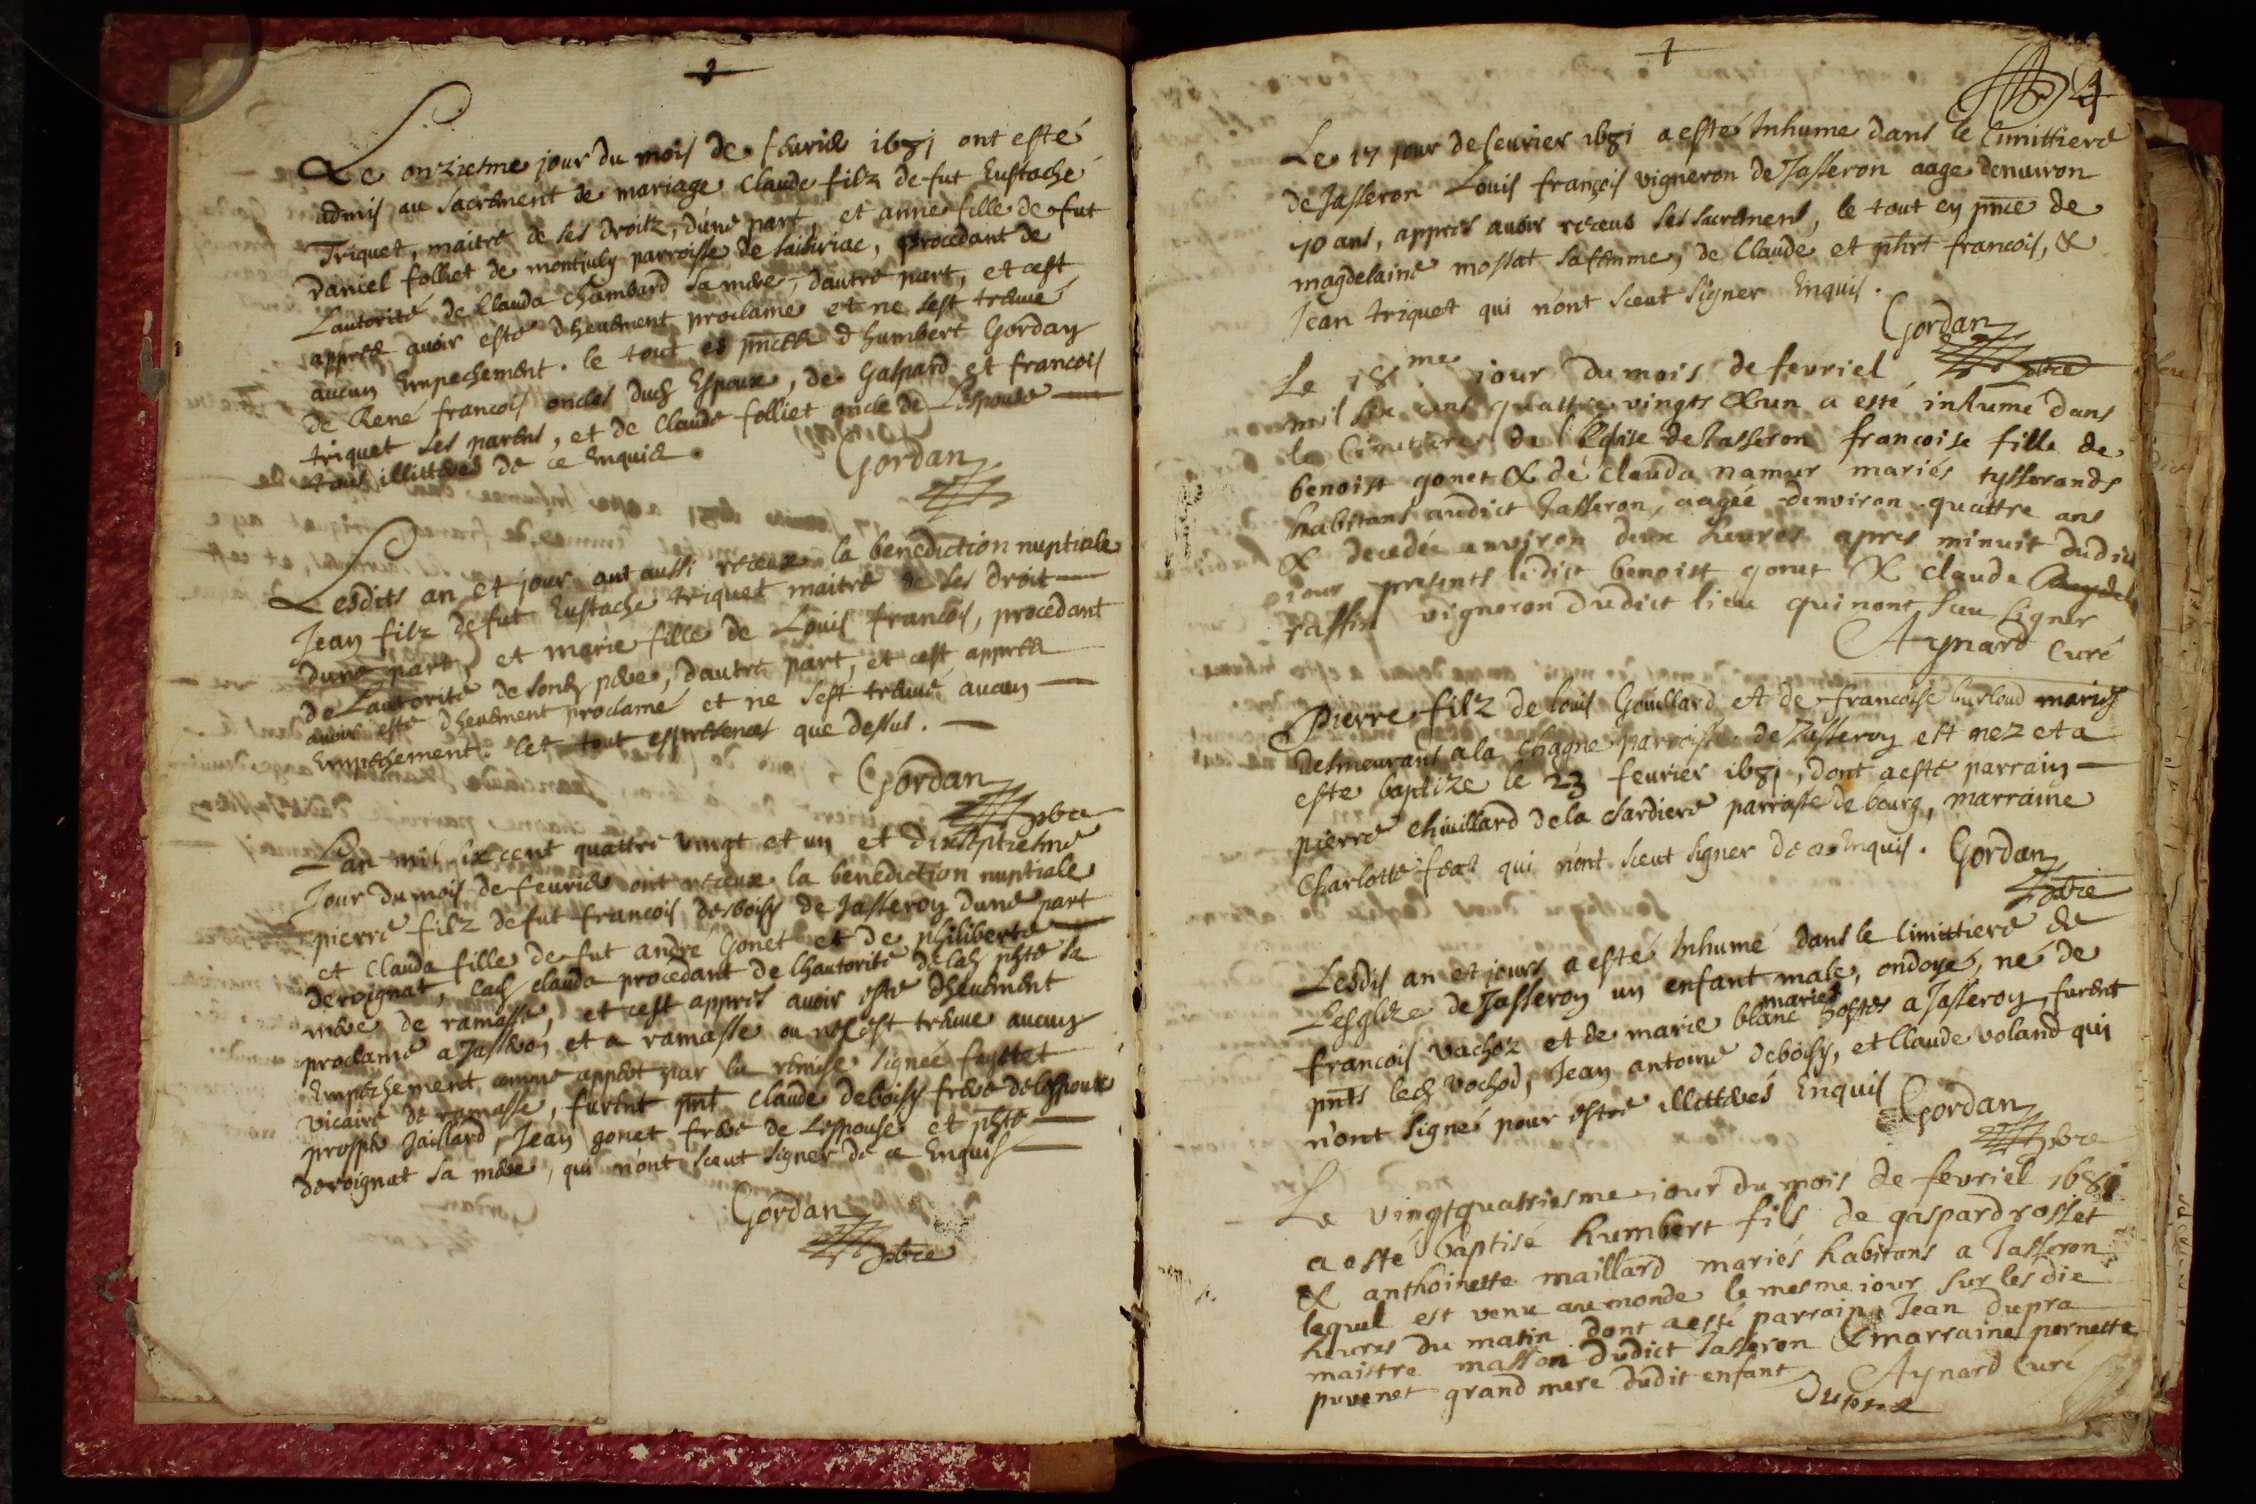 Le onziesme jour du mois de febvrier 1681 ont esté
admis au sacrement de mariage Claude filz de fut Eustache
Triquet, maitre de ses droitz, d'une part, et anne fille de fut
Daniel folliet de montjuly parroisse de saisiriac, procedant de
L'autorité de Clauda Chambard sa mere, dautre part, et cest
appres avoir esté dheuement proclame et ne sest treuué
aucun Empechement. le tout es pnces d humbert Gordan
de René francois oncles dud Espoux, de Gaspard et francois
triquet ses parens, et de Claude folliet oncle de L'espouse
tous illitteres de ce Enquis.
Gordan
Lesdits an et jour ont aussi receux la benediction nuptiale
Jean filz de fut Eustache triquet maitre de ses droit
dune part, et marie fille de Louis francois, procedant
de Lautorité de sond pere, dautre part, et cest appres
avoir esté dheuement proclamé et ne sest treuué aucun
Empechement. let tout es presences que dessus.
Gordan
pbre
Lan mil six cent quattre vingt et un et dixseptiesme
Jour du mois de feurier ont receux la benediction nuptiale
pierre filz de fut francois desboisy de Jasseron dune part
et Clauda fille de fut andré Gonet et de philiberte
deroignat, lad clauda procedant de Lhautorité de lad phte sa
mere de ramasse, et cest appres avoir esté dheuement
proclamé a Jasseron et a ramasse ou ne sest treuue aucun
Empechement comme appert par la remise signée fayttet
vicaire de ramasse, furent pnt Claude deboisy frere de lespoux
prosper Jaillard, Jean gonet frere de L'espouse et phte
deroignat sa mere, qui n'ont sceut signer de ce Enquis
Gordan
pbre
4
Le 17 jour de feurier 1681 a esté Inhume dans le Cimittiere
de Jasseron Louis françois vigneron de Jasseron aage denuiron
70 ans, appres auoir receus ses sacrement, le tout en pnce de
magdelaine mossat sa femme, de Claude et phrt francois, &
Jean triquet qui n'ont sceut signer Enquis.
Gordan
pbre
Le 18me jour du mois de fevriel
mil six cens quattre vingts & un a esté inhumé dans
le Cimetiere de l'Eglise de Jasseron francoise fille de
benoist gonet & de clauda namur mariés tysserands
habitans audict Jasseron, aagée denviron quattre ans
& decedée environ deux heures apres minuit dudict
jour presents ledict benoist gonet & claude
rassin vigneron dudict lieu qui nont sceu signer
Aynard Curé
Pierre filz de louis Gouillard et de francoise burloud mariez
desmeurans a la Chagne parroisse de Jasseron est nez et a
este baptize le 23 feurier 1681, dont a esté parrain
pierre chiuillard de la Sardiere parroisse de bourg, marraine
Charlotte feat qui n'ont sceut signer de ce Enquis. Gordan
pbre
Lesdis an et jours a esté Inhumé dans le Cimittiere de
Lesglize de Jasseron un enfant male, ondoyé, né de
francois vachoz et de marie blanc mariés hostes a Jasseron, furent
pnts led vochod, Jean antoine deboisy, et Claude voland qui
n'ont signé pour estre illitteres Enquis
Gordan
pbre
Le vingtquatriesme jour du mois de fevriel 1681
a esté baptisé humbert fils de gaspard rosset
& anthoinette maillard mariés habitans a Jasseron
lequel est venu au monde le mesme jour sur les dix
heures du matin dont a esté parrain Jean dupra
maistre masson dudict Jasseron & marraine pernette
puvenet grand mere dudit enfant
Aynard Curé
Dupra